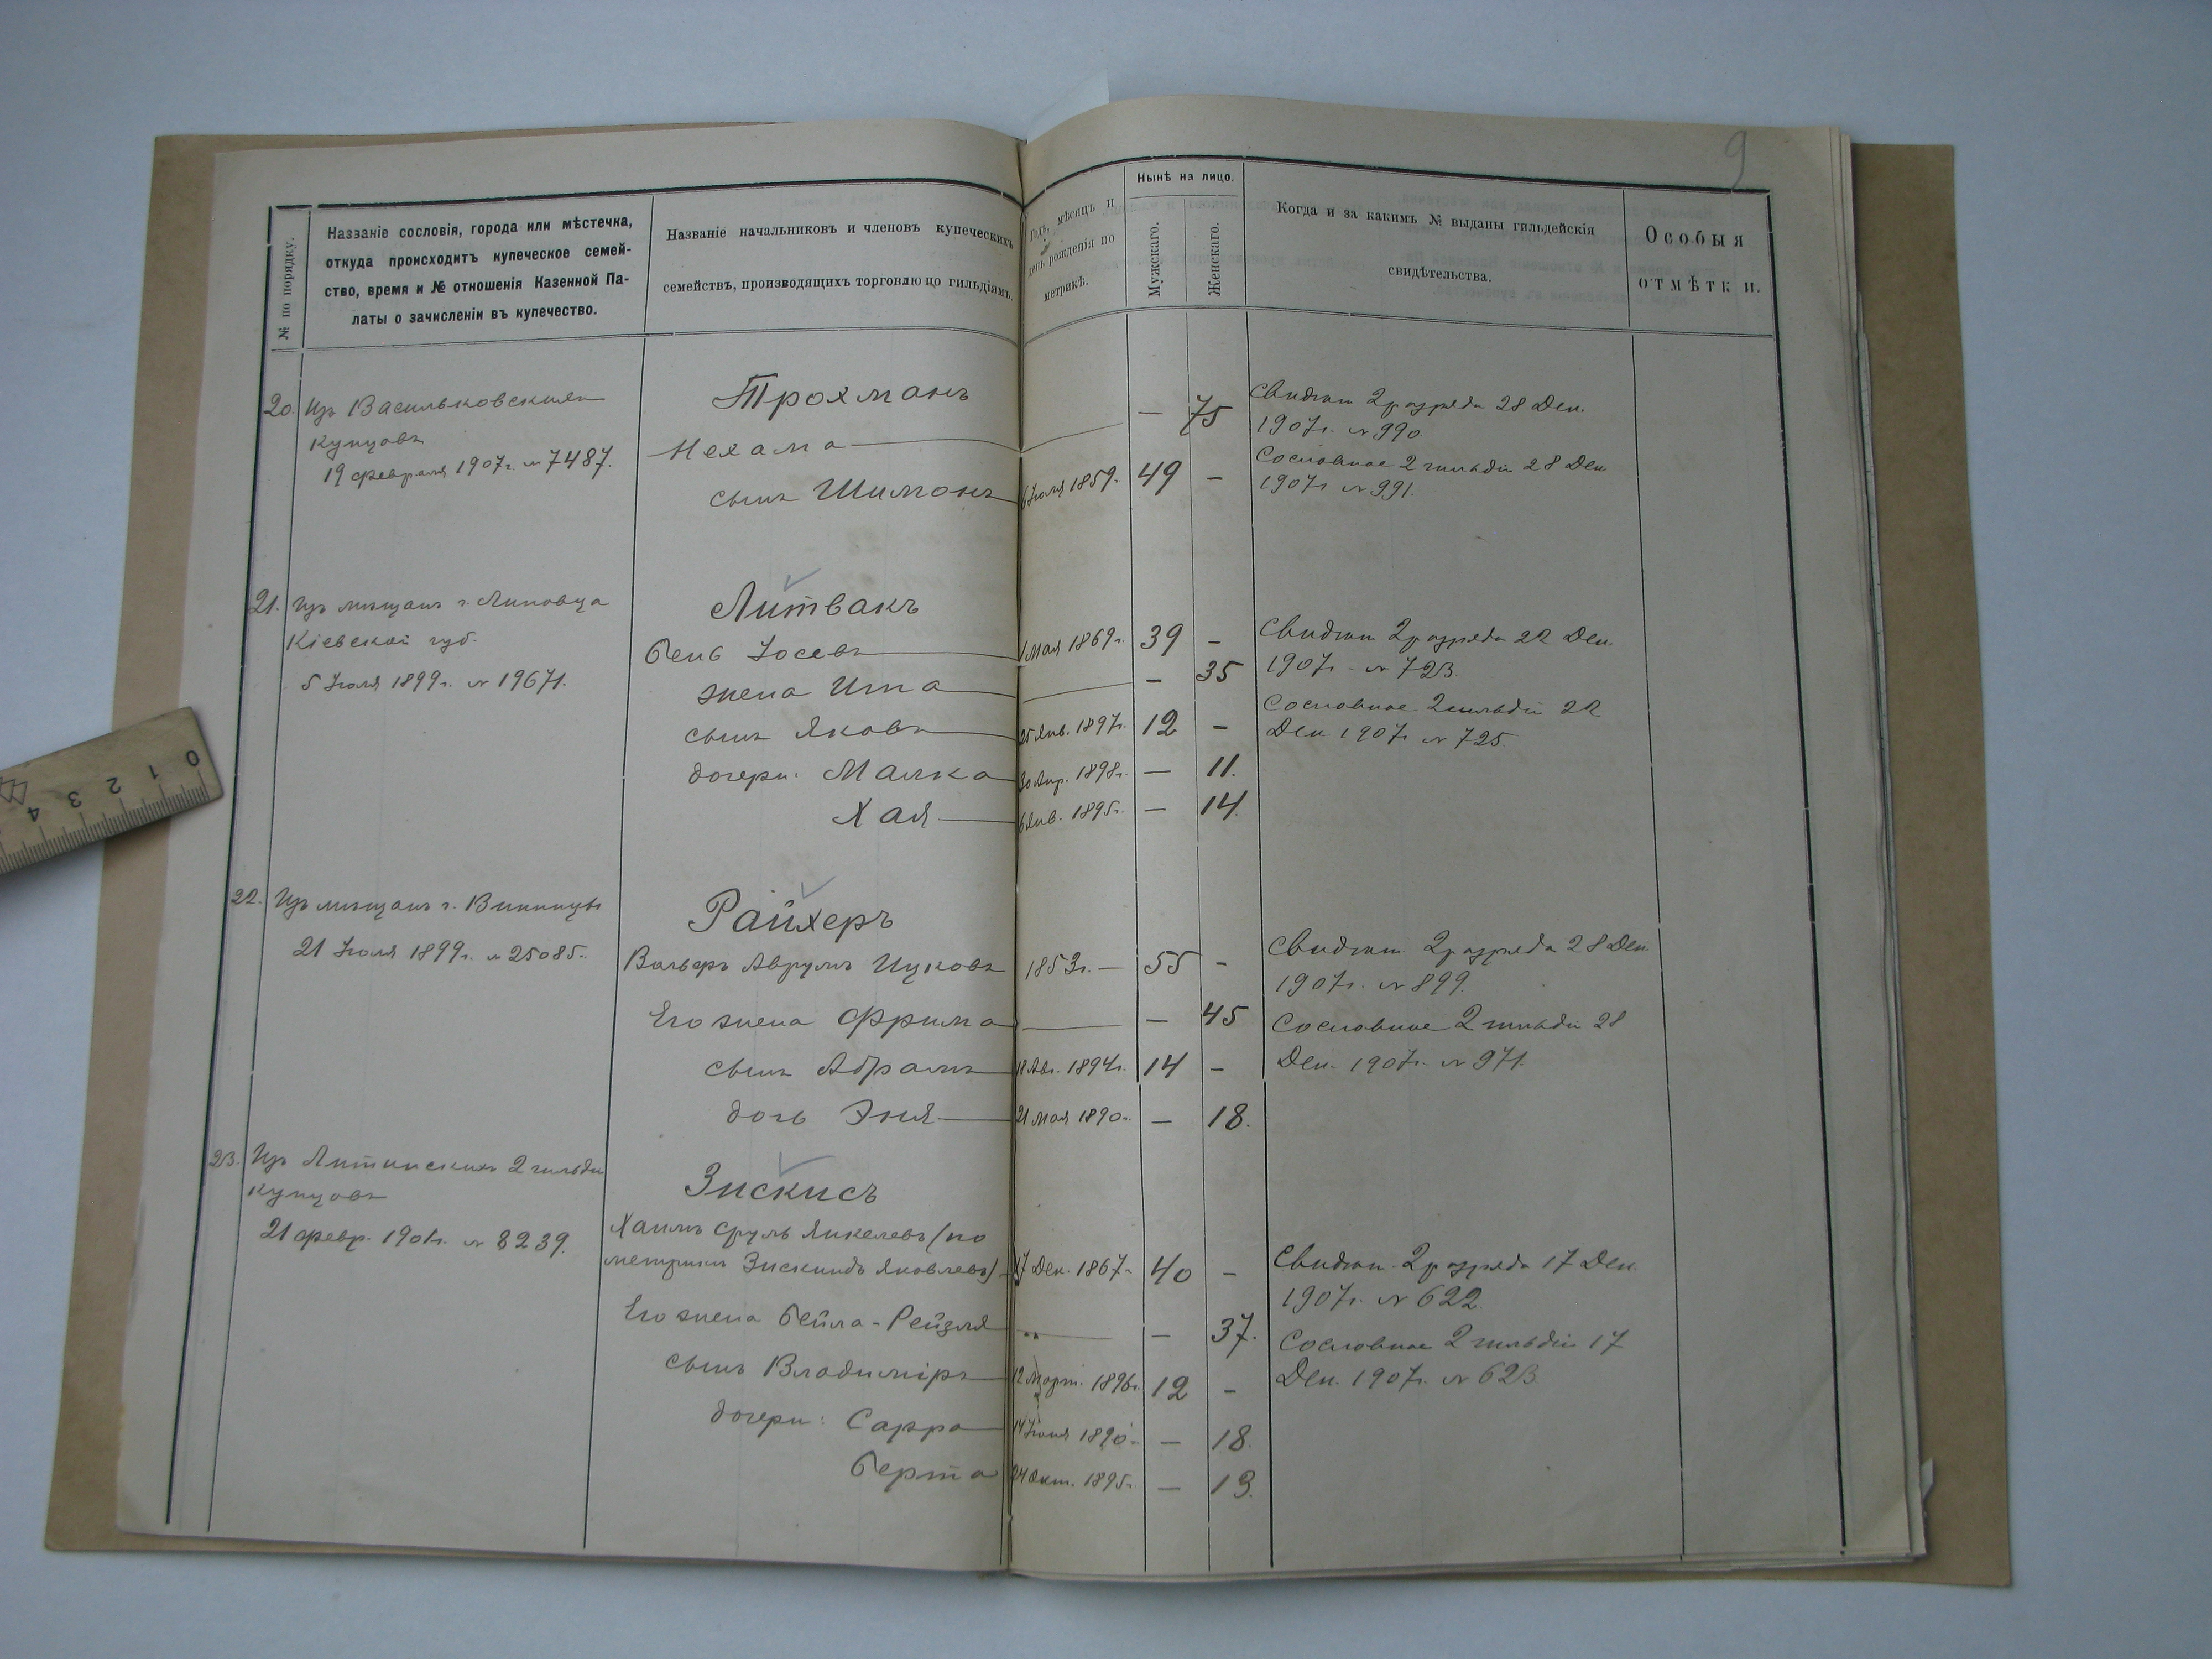 9
№ по порядку.
Названіе сословія, города или мѣстечка,
откуда происходитъ купеческое семей-
ство, время и № отношенія Казенной Па-
латы о зачисленіи въ купечество.
Названіе начальниковъ и членовъ купеческихъ
семействъ, производящихъ торговлю по гильдіямъ.
Годъ, мѣсяцъ и
день рожденія по
метрикѣ.
Нынѣ на лицо.
Мужскаго.
Женскаго.
Когда и за какимъ № выданы гильдейскія
свидѣтельства.
Особыя
отмѣтки.
20. Изъ Васильковскихъ
купцовъ
19 февраля 1907г. № 7487.
Трохманъ
Нехама — — 75
сынъ Шимонъ 6 Іюля 1859г. 49 —
Свидѣт. 2 разряда 28 Дек.
1907г. № 990
Сословное 2 гильдіи 28 Дек.
1907г. № 991.
21. Изъ мѣщанъ г. Липовца
Кіевской губ.
5 Іюля 1899г. № 19671.
Литвакъ
Бенъ Іосевъ 1 Мая 1869г. 39 —
жена Ита — — 35
сынъ Яковъ 25 Янв. 1897г. 12 —
дочери: Малка 30 Апр. 1898г. — 11.
Хая 6 Янв. 1895г. — 14.
Свидѣт. 2 разряда 22 Дек.
1907г. № 723.
Сословное 2 гильдіи 22
Дек. 1907г. № 725
22. Изъ мѣщанъ г. Винницы
21 Іюля 1899г. № 25085.
Райхеръ
Вольфъ Аврумъ Ицковъ 1853г. — 55 —
Его жена Фрима — — 45
сынъ Абрамъ 18 Авг. 1894г. 14 —
дочь Эня 21 Мая 1890г. — 18.
Свидѣт. 2 разряда 28 Дек.
1907г. № 899.
Сословное 2 гильдіи 28
Дек. 1907г. № 971.
23. Изъ Литинскихъ 2 гильдіи
купцовъ
21 февр. 1901г. № 8239.
Зискисъ
Хаимъ Сруль Янкелевъ (по
метрикѣ Зискиндъ Яковлевъ) 17 Дек. 1867г. 40 —
Его жена Бейла-Рейзля „ — — 37.
сынъ Владиміръ 12 Март. 1896г. 12 —
дочери: Сарра 14 Іюня 1890г. — 18.
Берта 24 Окт. 1895г. — 13.
Свидѣт. 2 разряда 17 Дек.
1907г. № 622.
Сословное 2 гильдіи 17
Дек. 1907г. № 623.
0 1 2 3 4